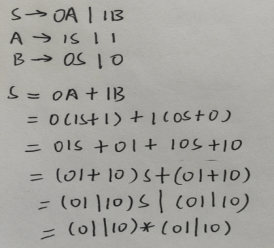 S → 0A | 1B
A → 1S | 1
B → 0S | 0
S = 0A + 1B
= 0(1S+1) + 1(0S+0)
= 01S + 01 + 10S + 10
= (01 + 10) S + (01 + 10)
= (01 | 10) S | (01 | 10)
= (01 | 10)* (01 | 10)